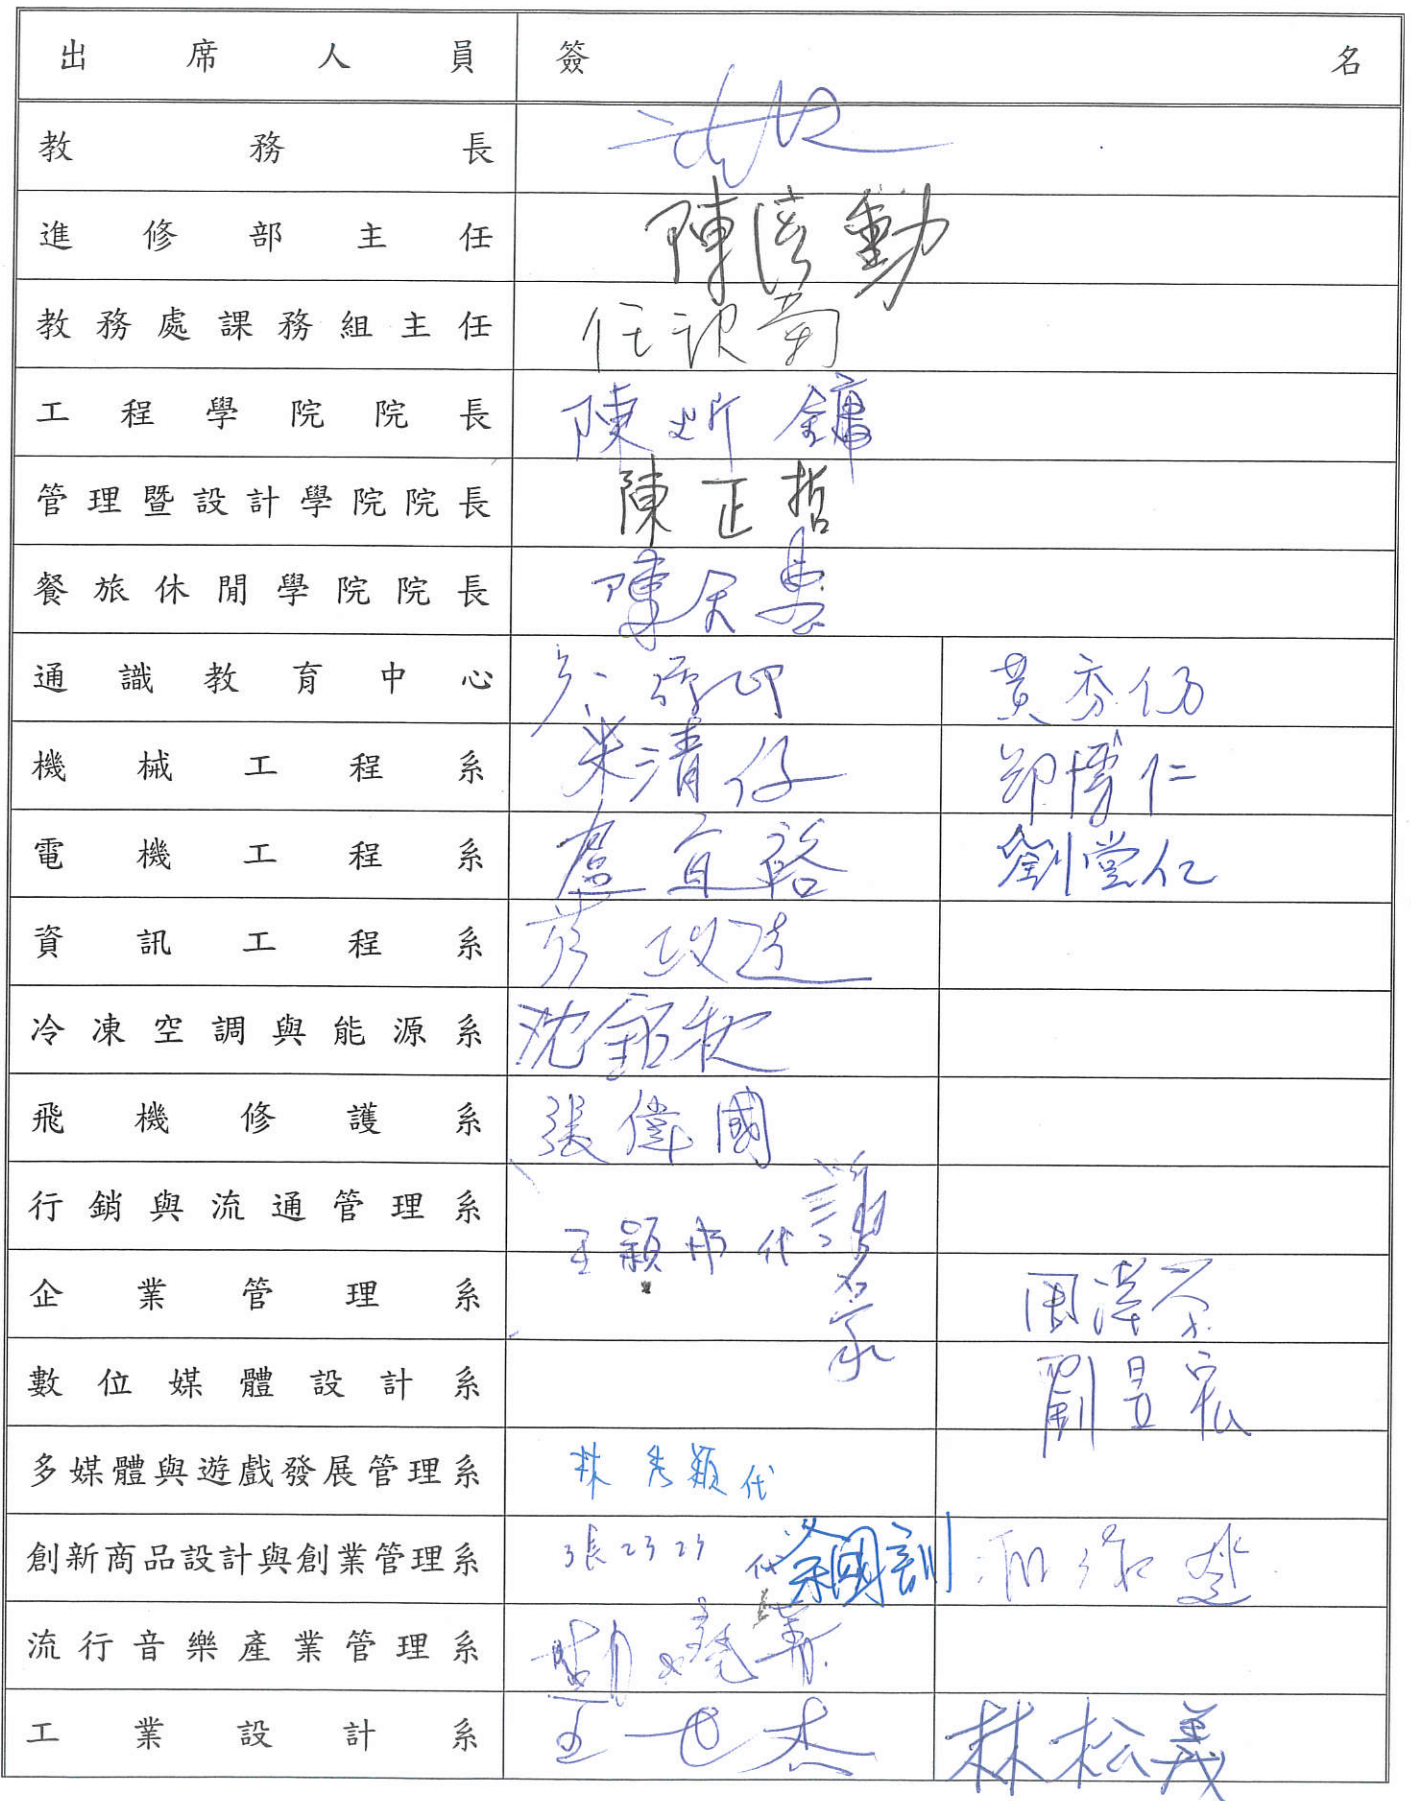 出席人員 簽名
教務長
進修部主任 陳 動
教務處課務組主任 任 菊
工程學院院長 陳 鏞
管理暨設計學院院長 陳正哲
餐旅休閒學院院長 陳
通識教育中心 黃秀仍
機械工程系 朱清仔 鄭博仁
電機工程系 盧宜裕 劉堂仁
資訊工程系 政達
冷凍空調與能源系 沈銘秋
飛機修護系 張偉國
行銷與流通管理系 王穎 代
企業管理系 周漢
數位媒體設計系 劉昱宏
多媒體與遊戲發展管理系 林秀穎代
創新商品設計與創業管理系 張 代 國訓
流行音樂產業管理系
工業設計系 王世杰 林松義